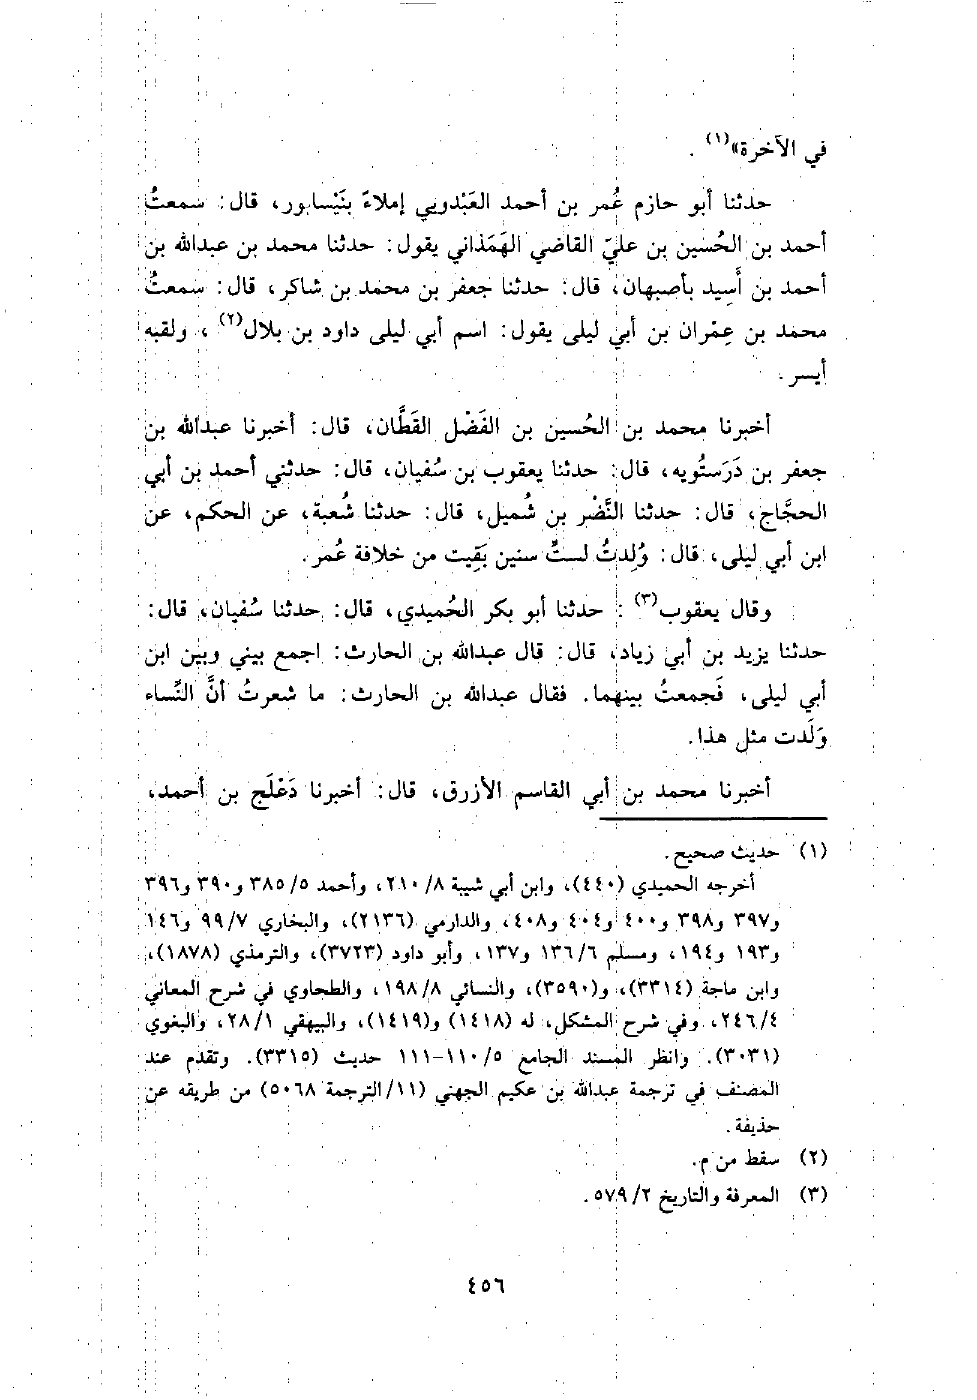 في الآخرة»(١).
حدثنا أبو حازم عُمر بن أحمد العَبْدويي إملاءً بنَيْسابور، قال: سَمعتُ
أحمد بن الحُسين بن عليّ القاضي الهَمَذاني يقول: حدثنا محمد بن عبدالله بن
أحمد بن أَسِيد بأصبهان، قال: حدثنا جعفر بن محمد بن شاكر، قال: سَمعتُ
محمد بن عِمْران بن أبي ليلى يقول: اسم أبي ليلى داود بن بلال(٢)، ولقبه
أيسر.
أخبرنا محمد بن الحُسين بن الفَضْل القَطَّان، قال: أخبرنا عبدالله بن
جعفر بن دَرَستُويه، قال: حدثنا يعقوب بن سُفيان، قال: حدثني أحمد بن أبي
الحجَّاج، قال: حدثنا النَّضْر بن شُميل، قال: حدثنا شُعبة، عن الحكم، عن
ابن أبي ليلى، قال: وُلِدتُ لستِّ سنين بَقِيت من خلافة عُمر.
وقال يعقوب(٣): حدثنا أبو بكر الحُميدي، قال: حدثنا سُفيان، قال:
حدثنا يزيد بن أبي زياد، قال: قال عبدالله بن الحارث: اجمع بيني وبين ابن
أبي ليلى، فَجمعتُ بينهما. فقال عبدالله بن الحارث: ما شعرتُ أنَّ النِّساء
وَلَدت مثل هذا.
أخبرنا محمد بن أبي القاسم الأزرق، قال: أخبرنا دَعْلَج بن أحمد،
(١) حديث صحيح.
أخرجه الحميدي (٤٤٠)، وابن أبي شيبة ٨/ ٢١٠، وأحمد ٥/ ٣٨٥ و٣٩٠ و٣٩٦
و٣٩٧ و٣٩٨ و٤٠٠ و٤٠٤ و٤٠٨، والدارمي (٢١٣٦)، والبخاري ٧/ ٩٩ و١٤٦
و١٩٣ و١٩٤، ومسلم ٦/ ١٣٦ و١٣٧، وأبو داود (٣٧٢٣)، والترمذي (١٨٧٨)،
وابن ماجة (٣٣١٤)، و(٣٥٩٠)، والنسائي ٨/ ١٩٨، والطحاوي في شرح المعاني
٤/ ٢٤٦، وفي شرح المشكل، له (١٤١٨) و(١٤١٩)، والبيهقي ١/ ٢٨، والبغوي
(٣٠٣١). وانظر المسند الجامع ٥/ ١١٠-١١١ حديث (٣٣١٥). وتقدم عند
المصنف في ترجمة عبدالله بن عكيم الجهني (١١/ الترجمة ٥٠٦٨) من طريقه عن
حذيفة.
(٢) سقط من م.
(٣) المعرفة والتاريخ ٢/ ٥٧٩.
٤٥٦